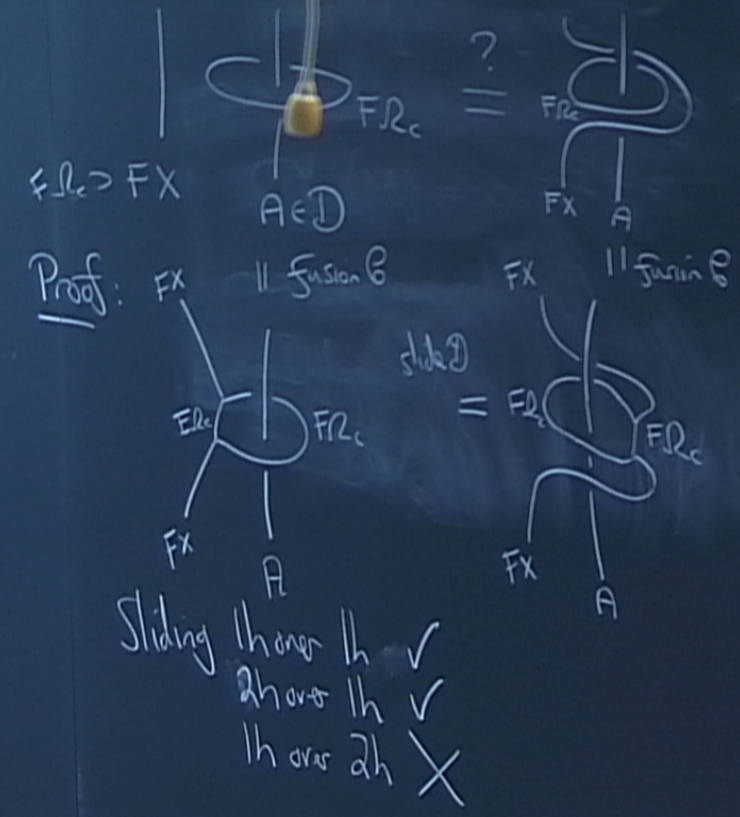 ? =
FΩc
FΩc
FΩc > FX
A∈D
FX A
Proof: FX || fusion C
FX || fusion C
slide D
=
FΩc FΩc
FΩc FΩc
FX A
FX A
Sliding 1h over 1h ✓
2h over 1h ✓
1h over 2h X